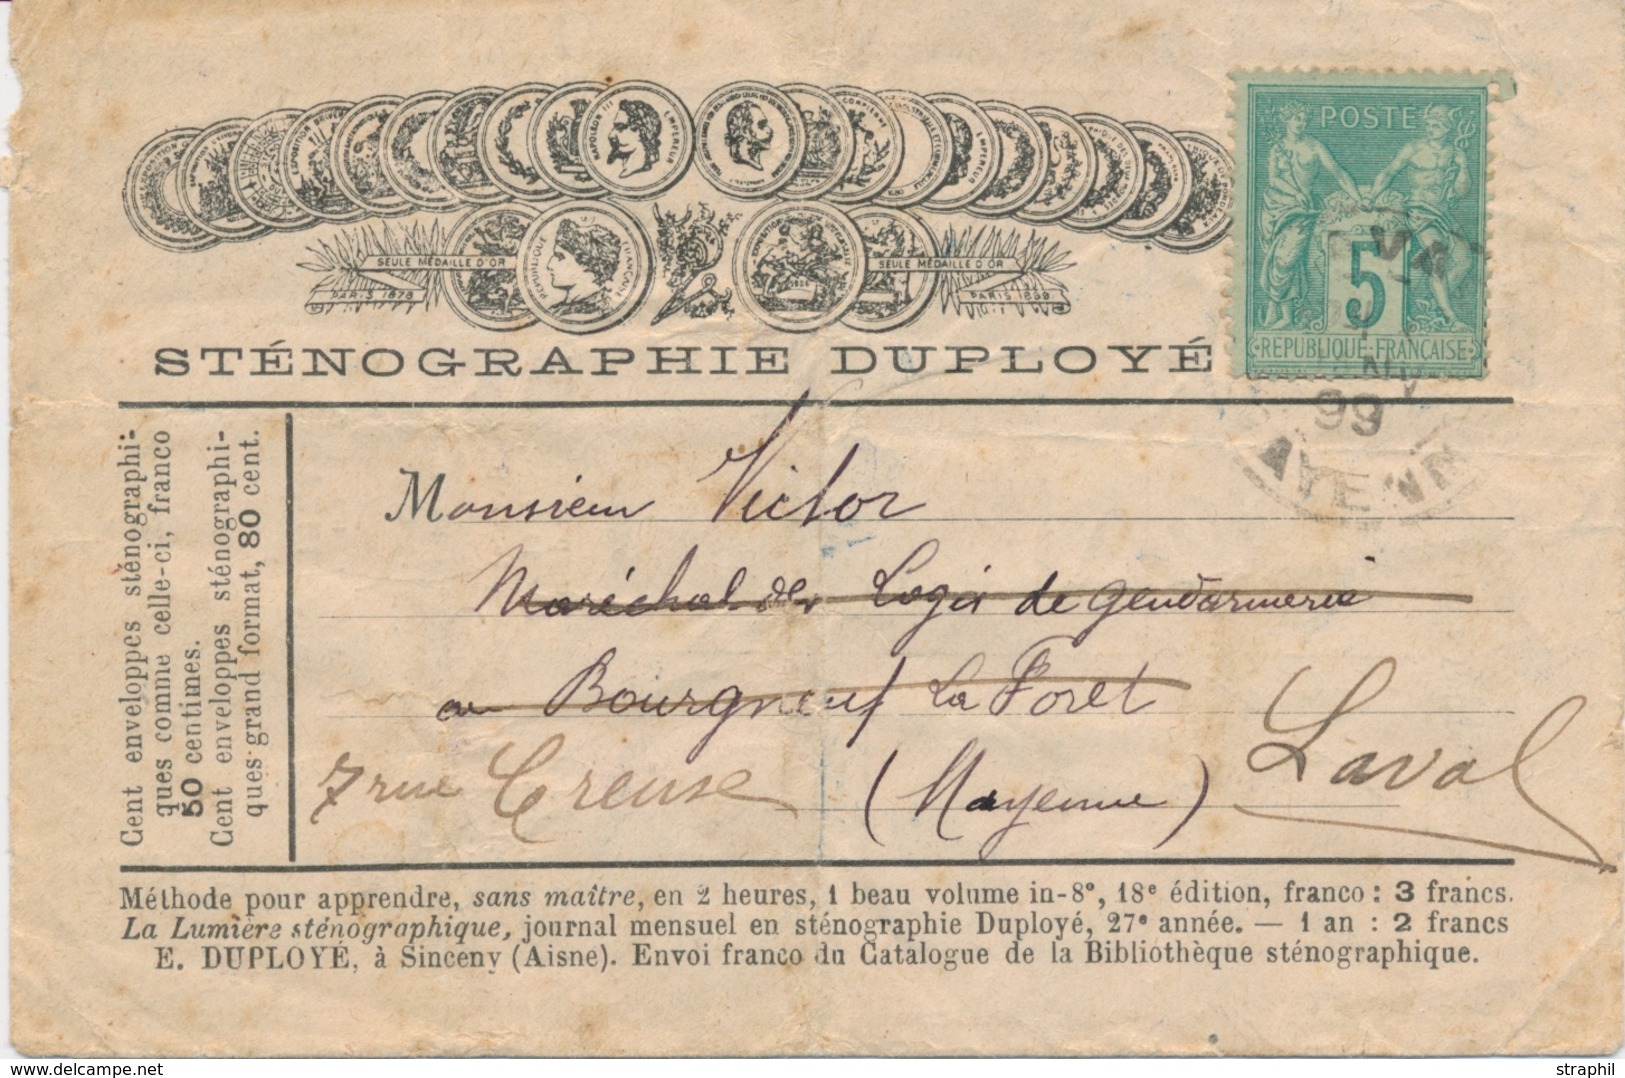 NAPOLEON III EMPEREUR
SEULE MÉDAILLE D'OR
PARIS 1878
RÉPUBLIQUE FRANÇAISE
SEULE MÉDAILLE D'OR
PARIS 1889
STÉNOGRAPHIE DUPLOYÉ
POSTE
5
REPUBLIQUE FRANÇAISE
99
Cent enveloppes sténographi-
ques comme celle-ci, franco
50 centimes.
Cent enveloppes sténographi-
ques grand format, 80 cent.
Monsieur Victor
Maréchal des Logis de gendarmerie
au Bourgneuf La Foret
7 rue Creuse (Mayenne) Laval
Méthode pour apprendre, sans maître, en 2 heures, 1 beau volume in-8°, 18e édition, franco : 3 francs.
La Lumière sténographique, journal mensuel en sténographie Duployé, 27e année. — 1 an : 2 francs
E. DUPLOYÉ, à Sinceny (Aisne). Envoi franco du Catalogue de la Bibliothèque sténographique.
© delcampe.net
straphil